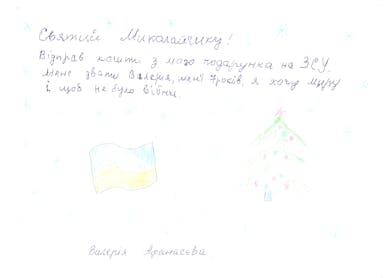 Святий Миколайчику!
Відправ кошти з мого подарунка на ЗСУ.
Мене звати Валерія, мені 7 років, я хочу миру
і щоб не було війни.
Валерія Афанасєва